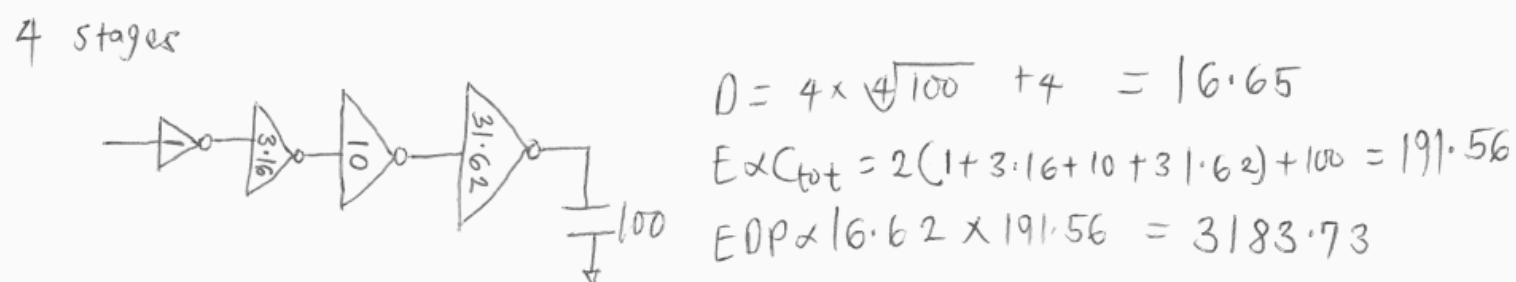 4 stages
1
3.16
10
31.62
100
D = 4 × ∜100 + 4 = 16.65
E ∝ Ctot = 2(1 + 3.16 + 10 + 31.62) + 100 = 191.56
EDP ∝ 16.62 × 191.56 = 3183.73